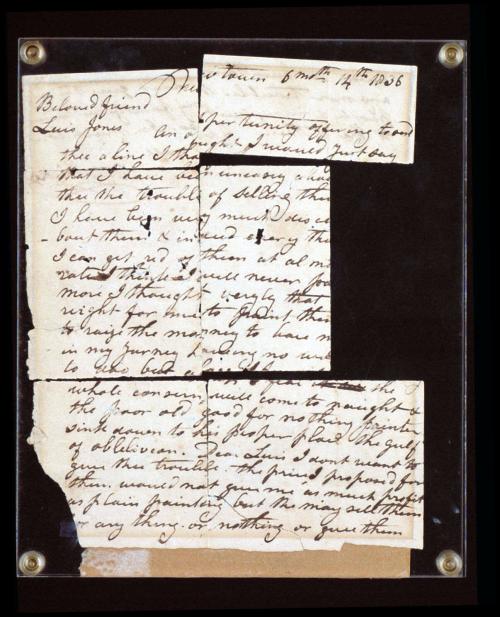 Newtown 6 moth 14th 1836
Beloved friend
Luis Jones an oppertunity offering to send
thee a line I thought I would Just say
that I have ben uneasy about
thee the trouble of selling them
I have been very much disco
bout them & indeed every thi
I can get rid of them at al mo
rate I think I will never
more I thought veryly that
right for me to paint them
to raise the money to bare m
in my Jurney having no
to who but
I fear the
whole concern will come to naught &
the poor old good for nothing painter
sink down to his proper place the gulf
of oblivion. Dear Luis I dont want to
give thee trouble. the price I proposed for
them. would not give me as much profit
as plain painting but the may sell them
or any thing. or nothing or give them